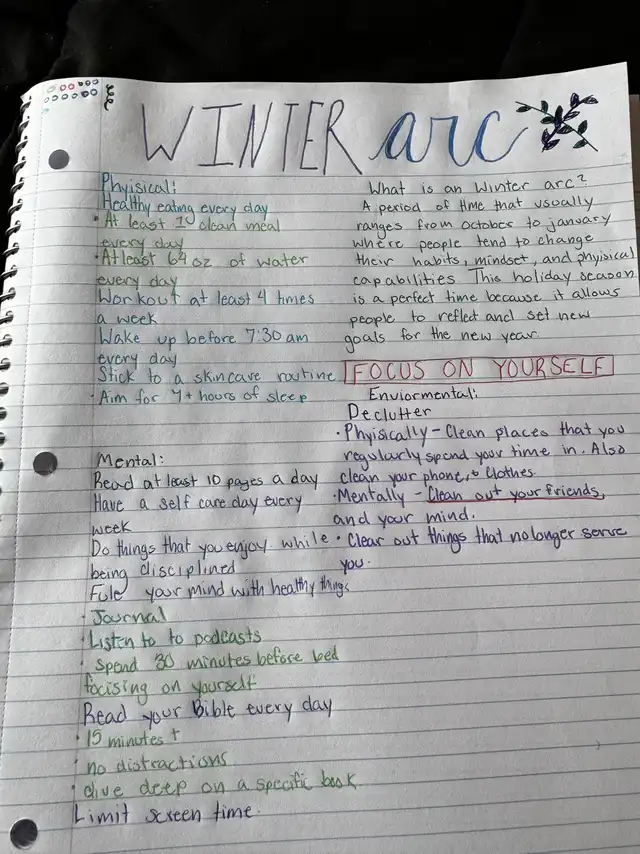 WINTER arc
Phyisical:
Healthy eating every day
• At least 1 clean meal
every day
• Atleast 64 oz of water
every day
Workout at least 4 times
a week
Wake up before 7:30 am
every day
Stick to a skincare routine
• Aim for 7+ hours of sleep
Mental:
Read at least 10 pages a day
Have a self care day every
week
Do things that you enjoy while
being disciplined
Fule your mind with healthy things
• Journal
• Listen to to podcasts
• Spend 30 minutes before bed
focising on yourself
Read your Bible every day
• 15 minutes +
• no distractions
• dive deep on a specific book
Limit screen time.
What is an Winter arc?
A period of time that usually
ranges from October to january
where people tend to change
their habits, mindset, and phyisical
capabilities This holiday season
is a perfect time because it allows
people to reflect and set new
goals for the new year.
FOCUS ON YOURSELF
Enviormental:
Declutter
• Phyisically - Clean places that you
regularly spend your time in. Also
clean your phone, + Clothes.
• Mentally - Clean out your friends,
and your mind.
• Clear out things that no longer serve
you.